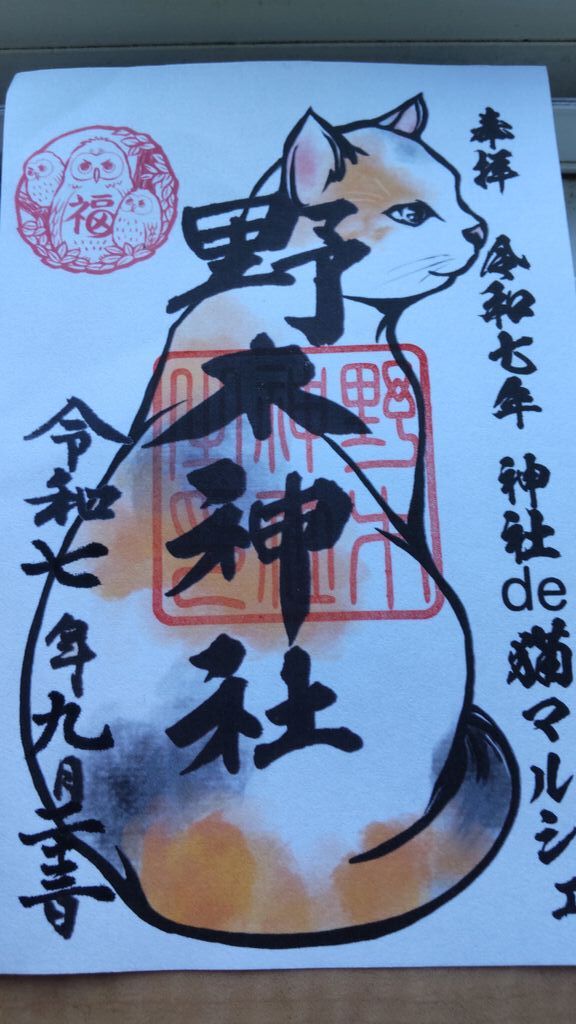 奉拝 令和七年 神社de猫マルシェ
野木神社
野木
神社
令和七年九月
福